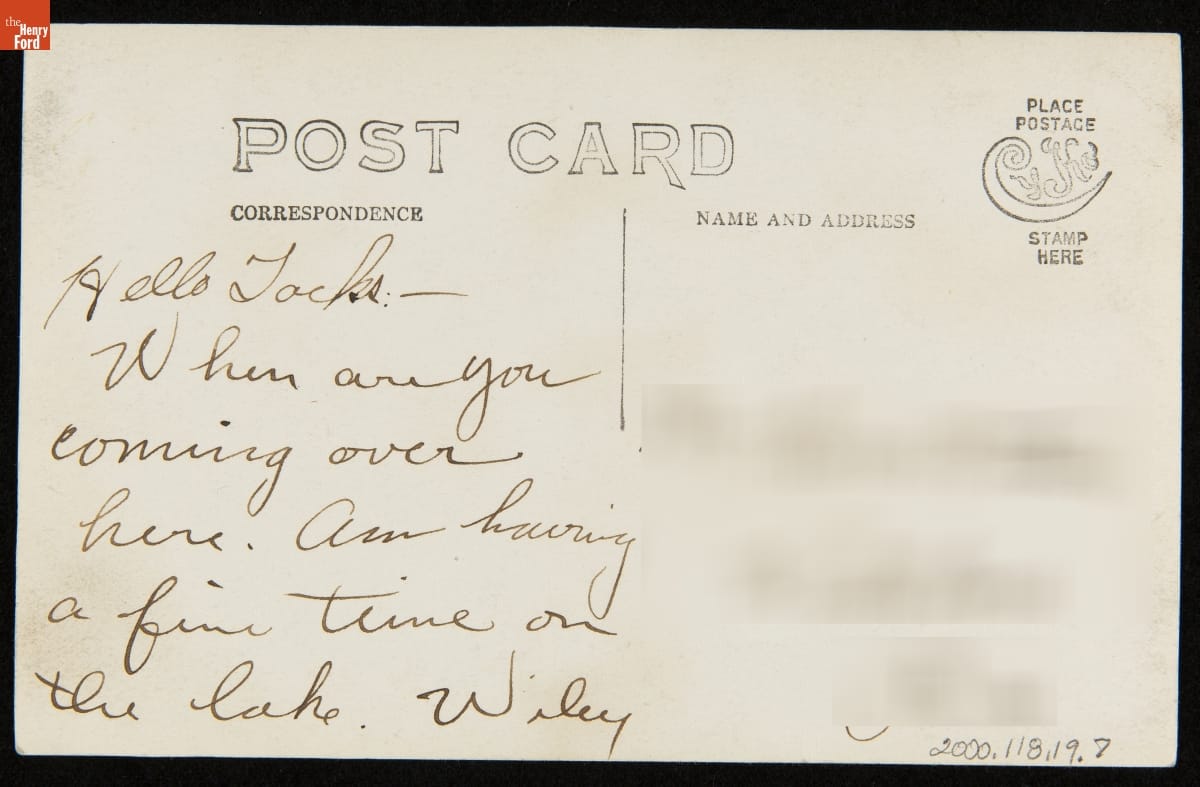 the
Henry
Ford
POST CARD
CORRESPONDENCE
NAME AND ADDRESS
PLACE
POSTAGE
CyKo
STAMP
HERE
Hello Jacks:—
When are you
coming over
here. Am having
a fine time on
the lake. Wiley
2000.118.19.7